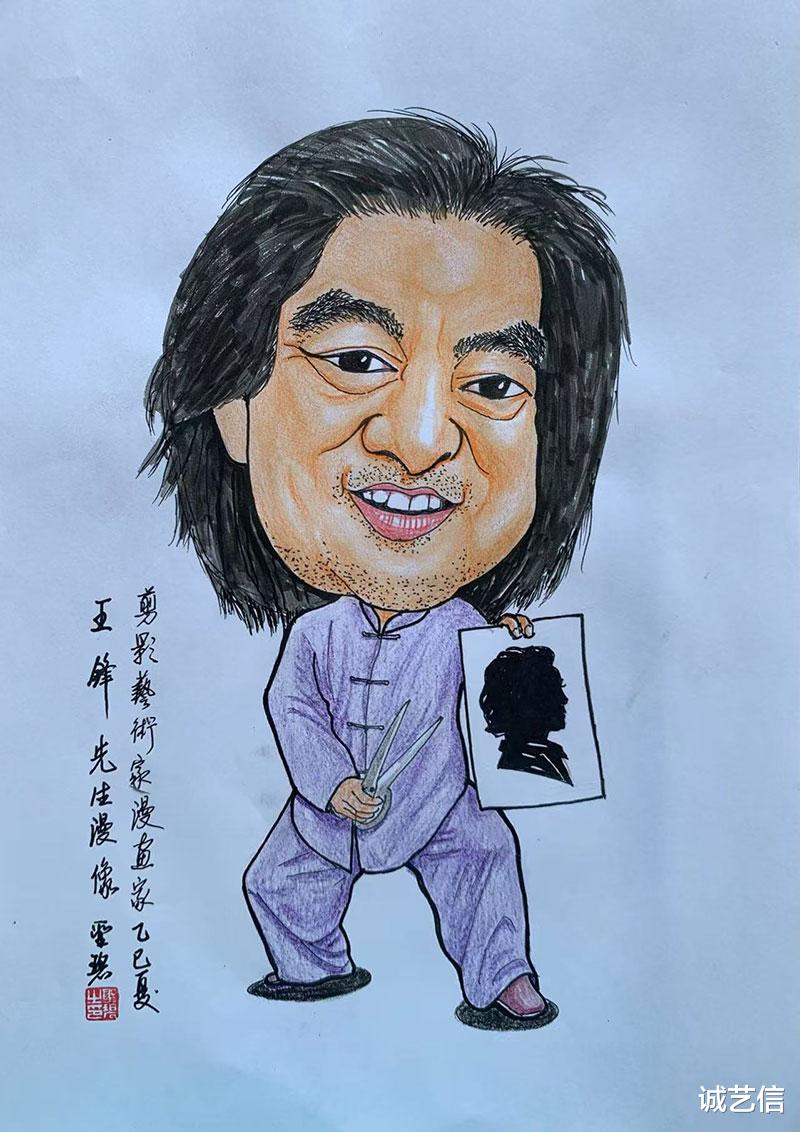 剪影藝術家漫画家 乙巳夏
王鋒先生漫像
诚艺信